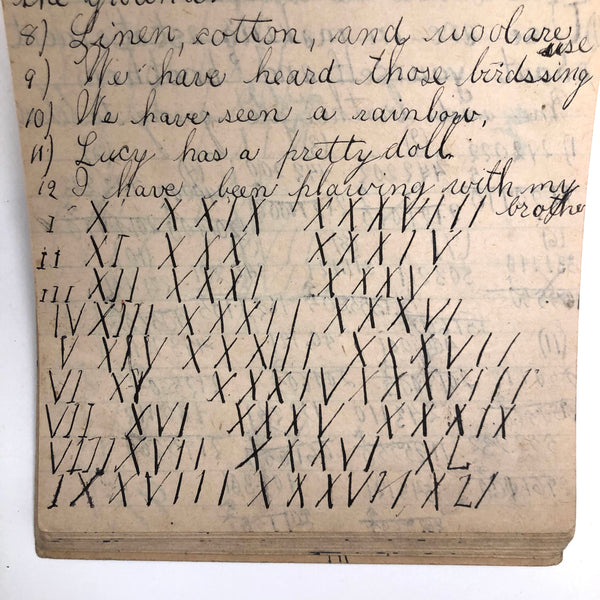 8) Linen, cotton, and wool are use
9) We have heard those birds sing
10) We have seen a rainbow,
11) Lucy has a pretty doll.
12 I have been plawing with my brothe
I X XXIX XXXVIII
II XI XXX XXXIV
III XII XXXI XXXV
IV XIII XXXII XXXVI
V XIV XXXIII XXXVII
VI XV XXXIV XXXVIII
VII XVI XXXV XXXIX
VIII XVII XXXVI XL
IX XVIII XXXVII XLI